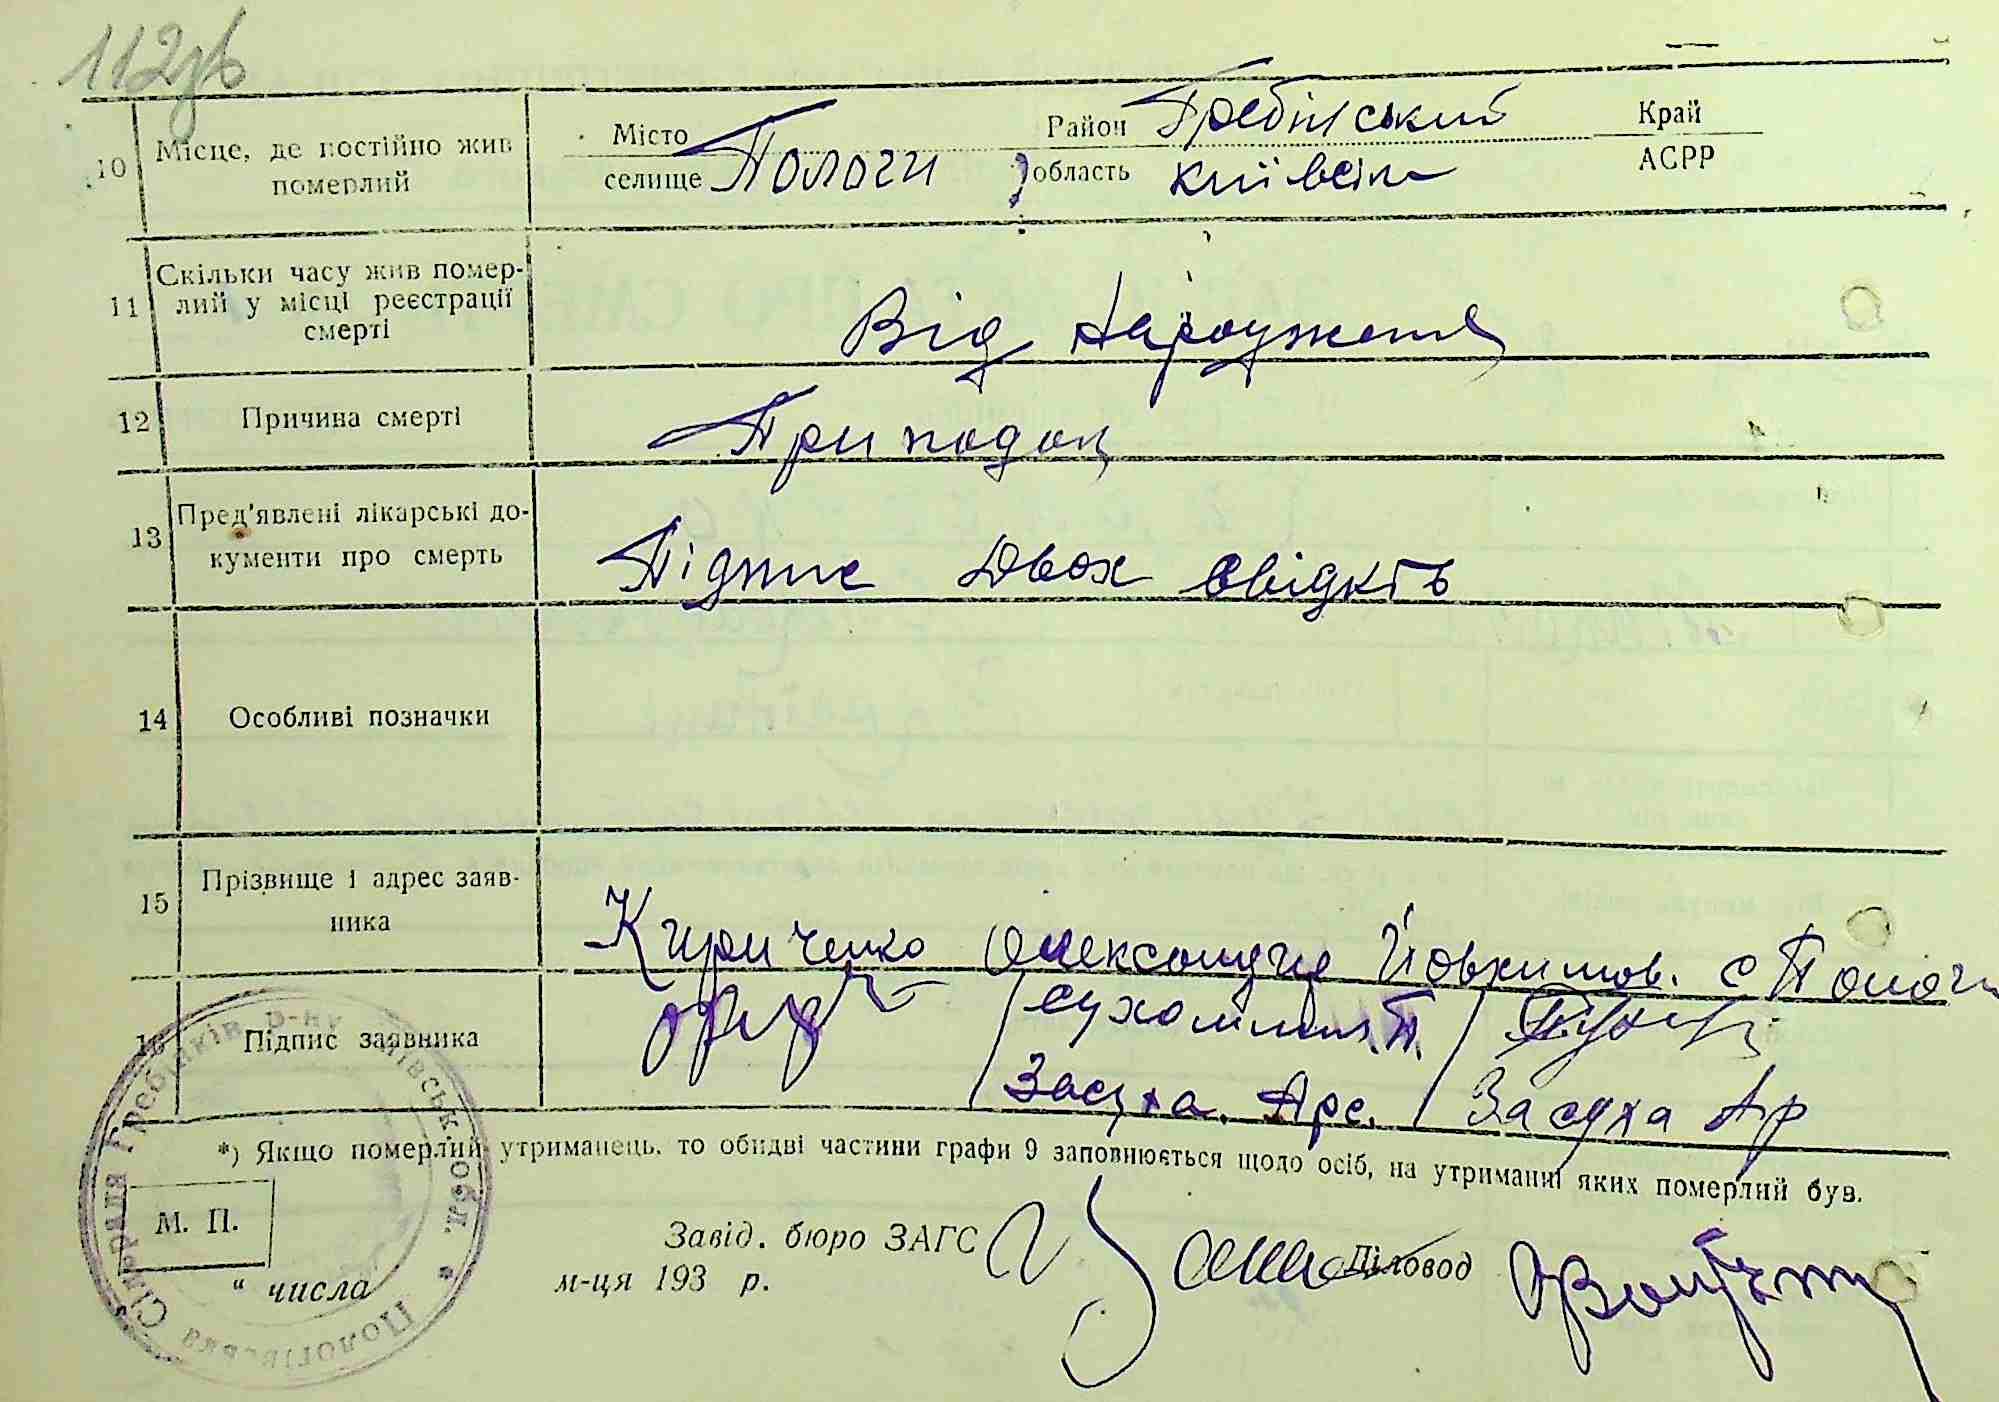 112зв
10 Місце, де постійно жив Місто Район Гребінський Край
померлий селище Пологи область Київськ АСРР
11 Скільки часу жив помер-
лий у місці реєстрації
смерті Від народження
12 Причина смерті Приподок
13 Пред'явлені лікарські до-
кументи про смерть Підпис двох свідків
14 Особливі позначки
15 Прізвище і адрес заяв-
ника Кириченко Олександра Йовхимов. с Пологи
16 Підпис заявника Сухомлин. П.
Засуха. Арс. Засуха Ар
*) Якщо померлий утриманець, то обидві частини графи 9 заповнюється щодо осіб, на утриманні яких померлий був.
М. П.
Завід. бюро ЗАГС Діловод
“ числа м-ця 193 р.
Пологівська Сільрада Гребінків р-ну Київськ. обл.